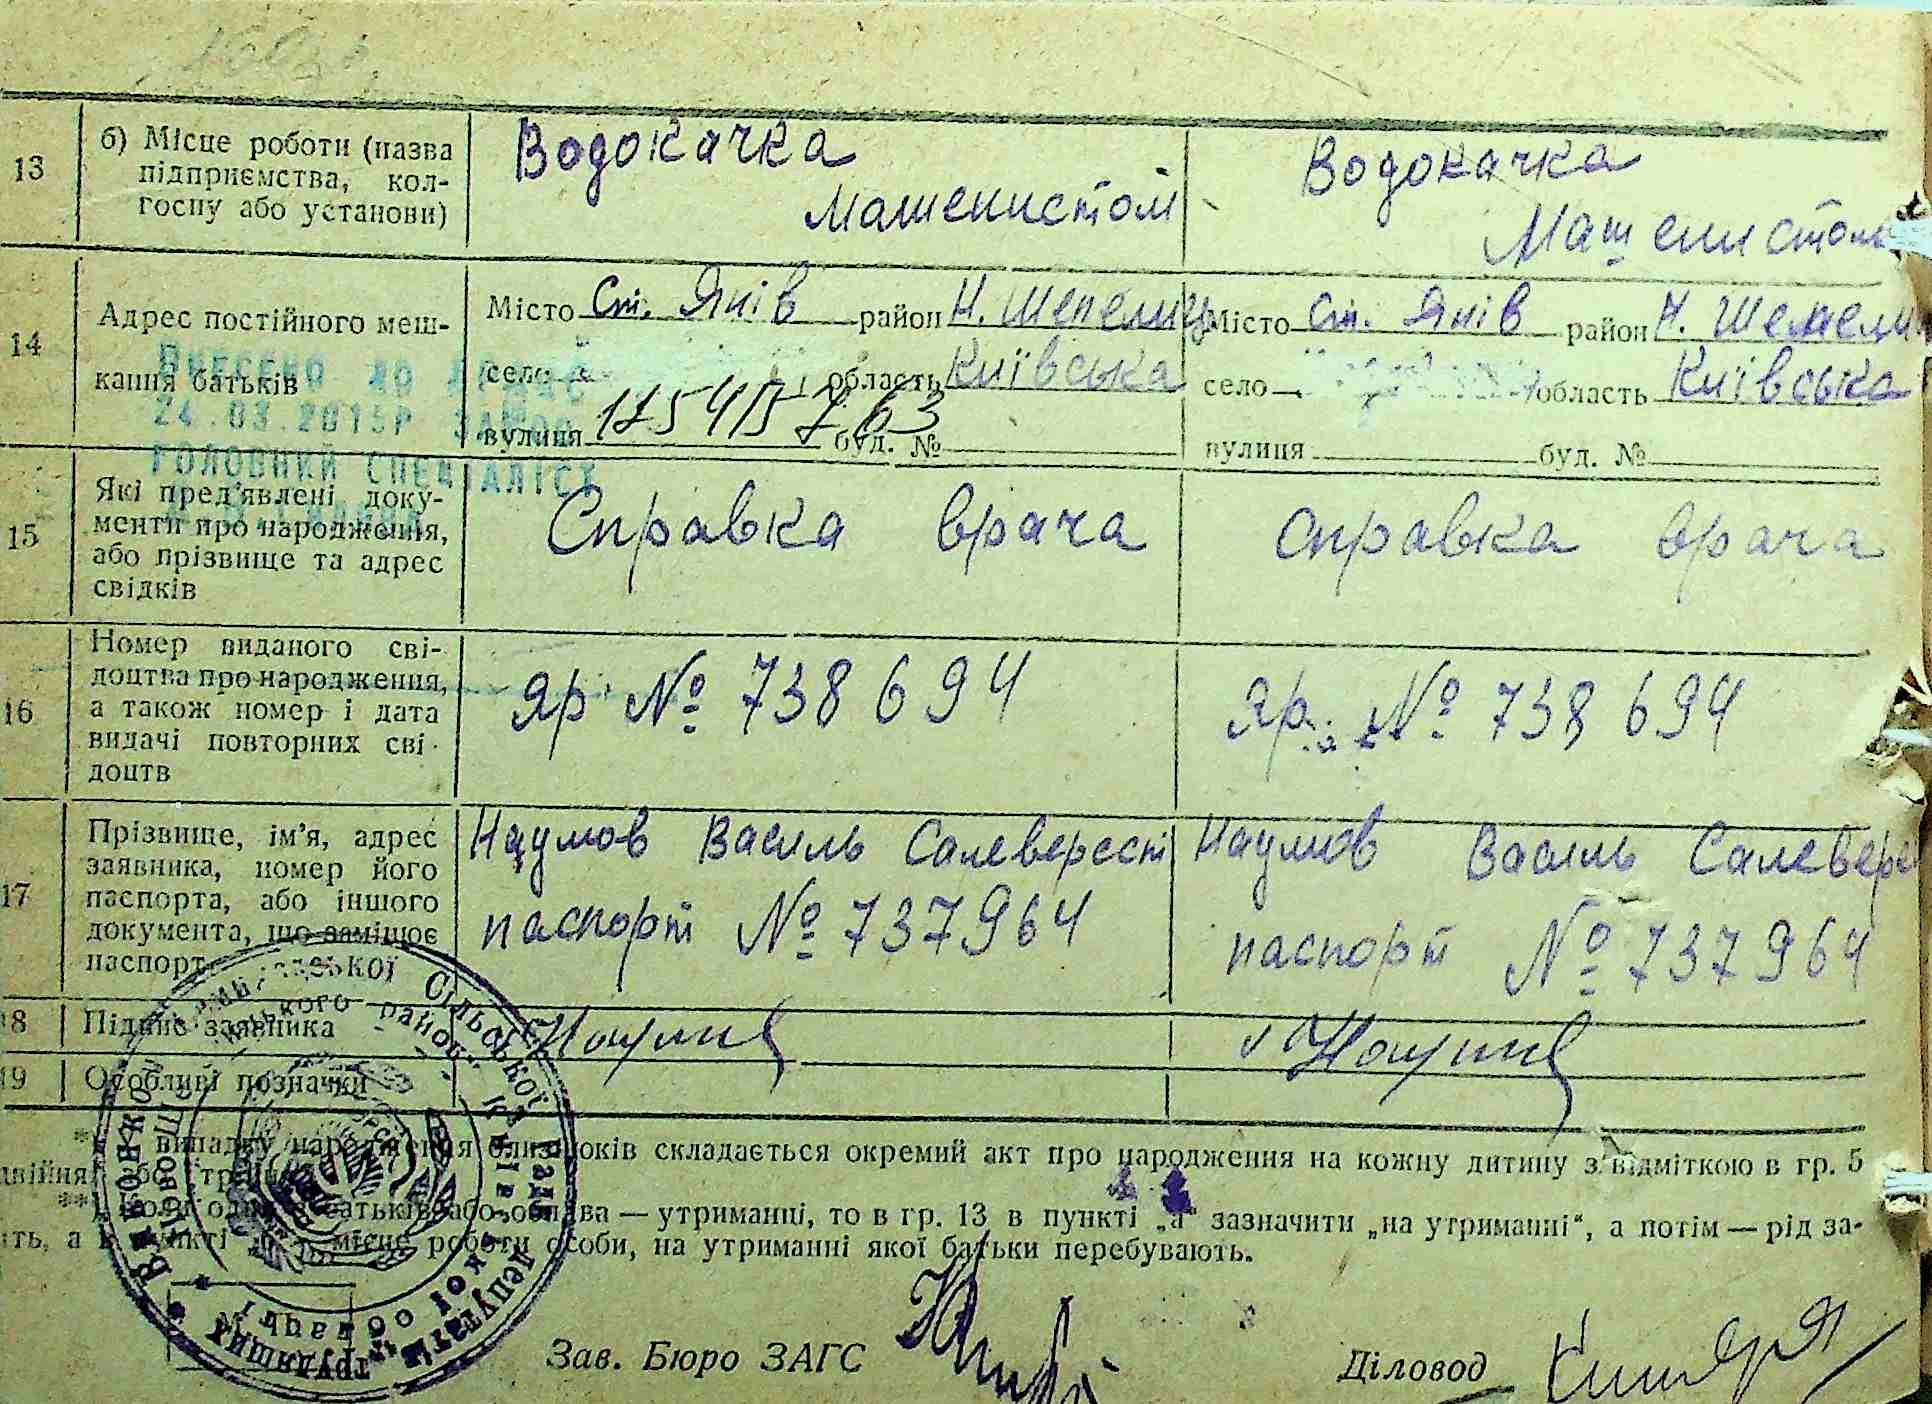 13
б) Місце роботи (назва
підприємства, кол-
госпу або установи)
Водокачка
машенистом
Водокачка
Машенистом
14
Адрес постійного меш-
кання батьків
Місто ст. Янів район Н. Шепелиц
село область Київська
вулиня буд. №
1754157863
Місто ст. Янів район Н. Шепели
село область Київська
вулиця буд. №
ВНЕСЕНО ДО
24.03.2015Р
ГОЛОВНИЙ СПЕЦІАЛІСТ
15
Які пред'явлені доку-
менти про народження,
або прізвище та адрес
свідків
Справка врача
Справка врача
16
Номер виданого сві-
доцтва про народження,
а також номер і дата
видачі повторних сві-
доцтв
Яр № 738694
Яр. № 738694
17
Прізвище, ім'я, адрес
заявника, номер його
паспорта, або іншого
документа, що заміщює
паспорт
Наумов Василь Салеверест
паспорт № 737964
Наумов Василь Салевере
паспорт № 737964
18
Підпис заявника
19
Особливі позначки
випадку народження близнюків складається окремий акт про народження на кожну дитину з відміткою в гр. 5
**) батьків або обидва — утриманці, то в гр. 13 в пункті „а“ зазначити „на утриманні“, а потім — рід за-
ть, а в пункті місце роботи особи, на утриманні якої батьки перебувають.
Сільської Ради Депутатів Трудящих
району Київської області
Виконком
Зав. Бюро ЗАГС
Діловод